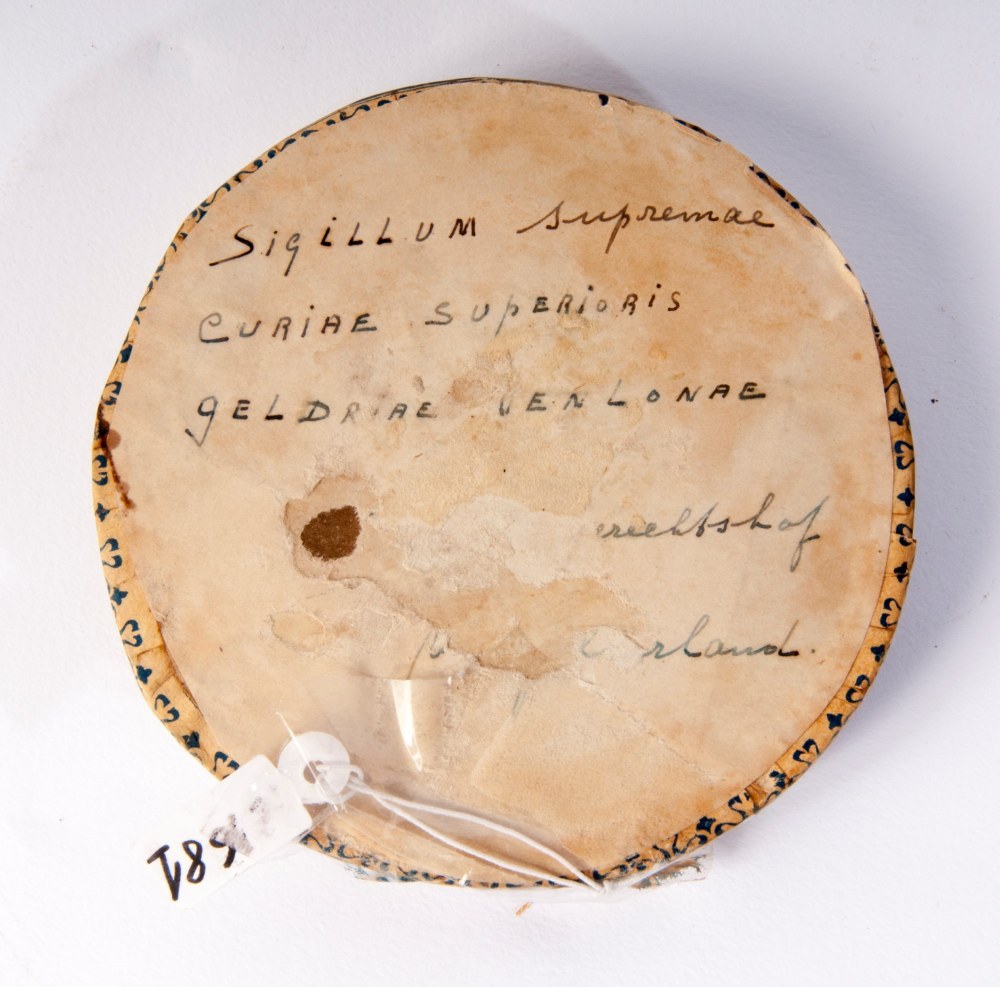 Sigillum supremae
Curiae superioris
geldriae venlonae
erechtshof
erland.